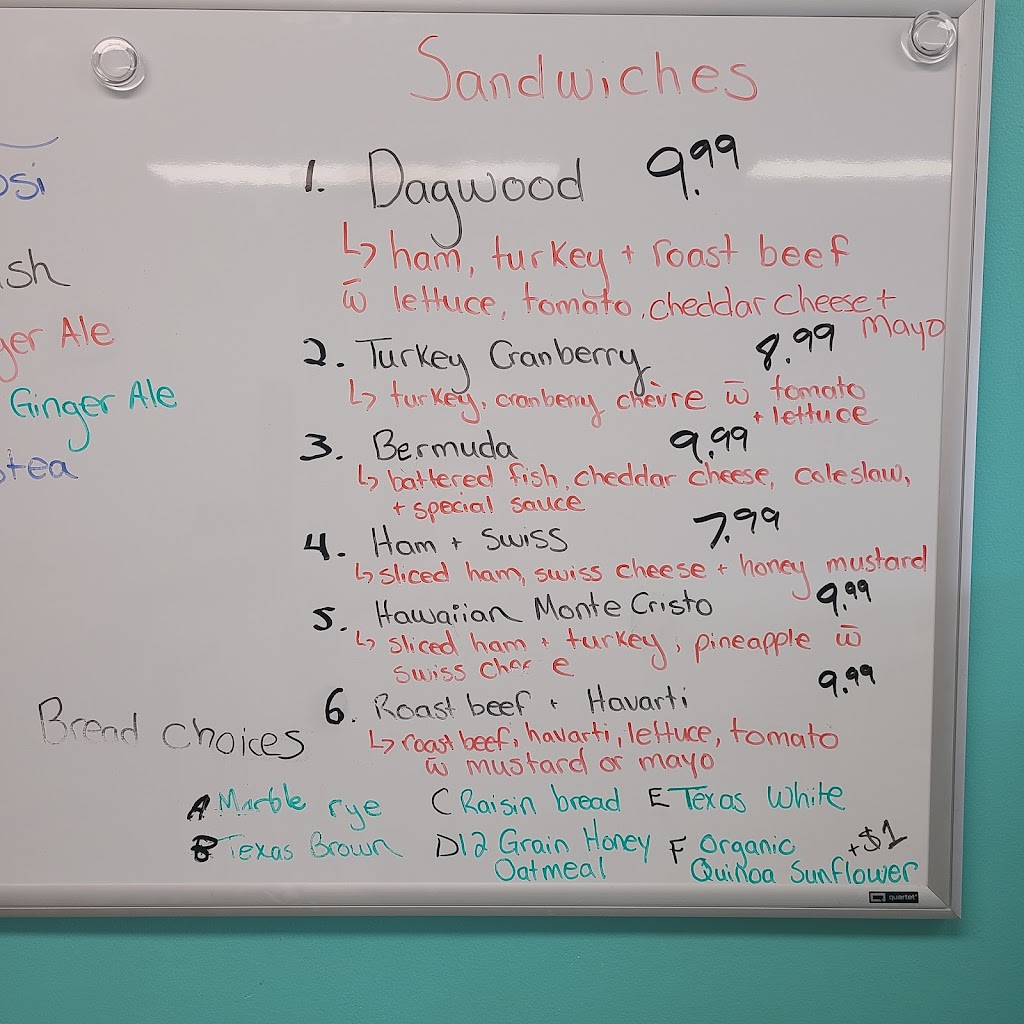 Sandwiches
1. Dagwood 9.99
↳ ham, turkey + roast beef
w̄ lettuce, tomato, cheddar cheese +
mayo
2. Turkey Cranberry 8.99
↳ turkey, cranberry chèvre w̄ tomato
+ lettuce
3. Bermuda 9.99
↳ battered fish, cheddar cheese, coleslaw,
+ special sauce
4. Ham + Swiss 7.99
↳ sliced ham, swiss cheese + honey mustard
5. Hawaiian Monte Cristo 9.99
↳ sliced ham + turkey, pineapple w̄
swiss
6. Roast beef + Havarti 9.99
↳ roast beef, havarti, lettuce, tomato
w̄ mustard or mayo
Bread choices
A Marble rye C Raisin bread E Texas White
B Texas Brown D 12 Grain Honey F Organic +$1
Oatmeal Quinoa Sunflower
osi
ish
ger Ale
Ginger Ale
tea
quartet